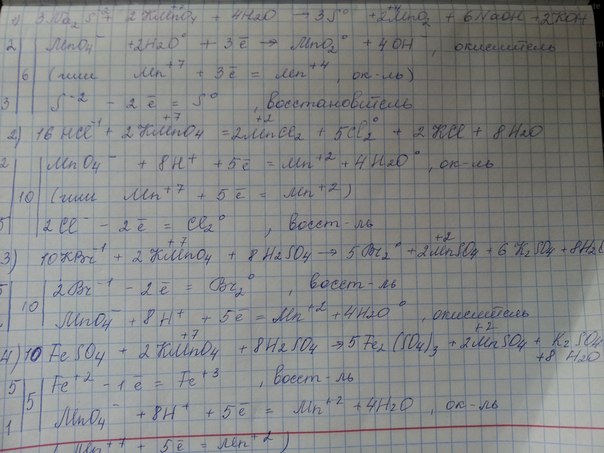 1) 3Na₂S⁻² + 2KMnO₄⁺⁷ + 4H₂O → 3S⁰ + 2MnO₂⁺⁴ + 6NaOH + 2KOH
2 | MnO₄⁻ + 2H₂O⁰ + 3ē → MnO₂⁰ + 4OH⁻, окислитель
6 | (или Mn⁺⁷ + 3ē = Mn⁺⁴, ок-ль)
3 | S⁻² - 2ē = S⁰, восстановитель
2) 16HCl⁻¹ + 2KMnO₄⁺⁷ = 2MnCl₂⁺² + 5Cl₂⁰ + 2KCl + 8H₂O
2 | MnO₄⁻ + 8H⁺ + 5ē = Mn⁺² + 4H₂O⁰, ок-ль
10 | (или Mn⁺⁷ + 5ē = Mn⁺²)
5 | 2Cl⁻ - 2ē = Cl₂⁰, восст-ль
3) 10KBr⁻¹ + 2KMnO₄⁺⁷ + 8H₂SO₄ → 5Br₂⁰ + 2MnSO₄⁺² + 6K₂SO₄ + 8H₂O
5 | 10 | 2Br⁻¹ - 2ē = Br₂⁰, восст-ль
MnO₄⁻ + 8H⁺ + 5ē = Mn⁺² + 4H₂O⁰, окислитель
4) 10FeSO₄ + 2KMnO₄⁺⁷ + 8H₂SO₄ → 5Fe₂(SO₄)₃ + 2MnSO₄⁺² + K₂SO₄
+ 8H₂O
5 | 5 | Fe⁺² - 1ē = Fe⁺³, восст-ль
1 | MnO₄⁻ + 8H⁺ + 5ē = Mn⁺² + 4H₂O, ок-ль
(или Mn⁺⁷ + 5ē = Mn⁺²)